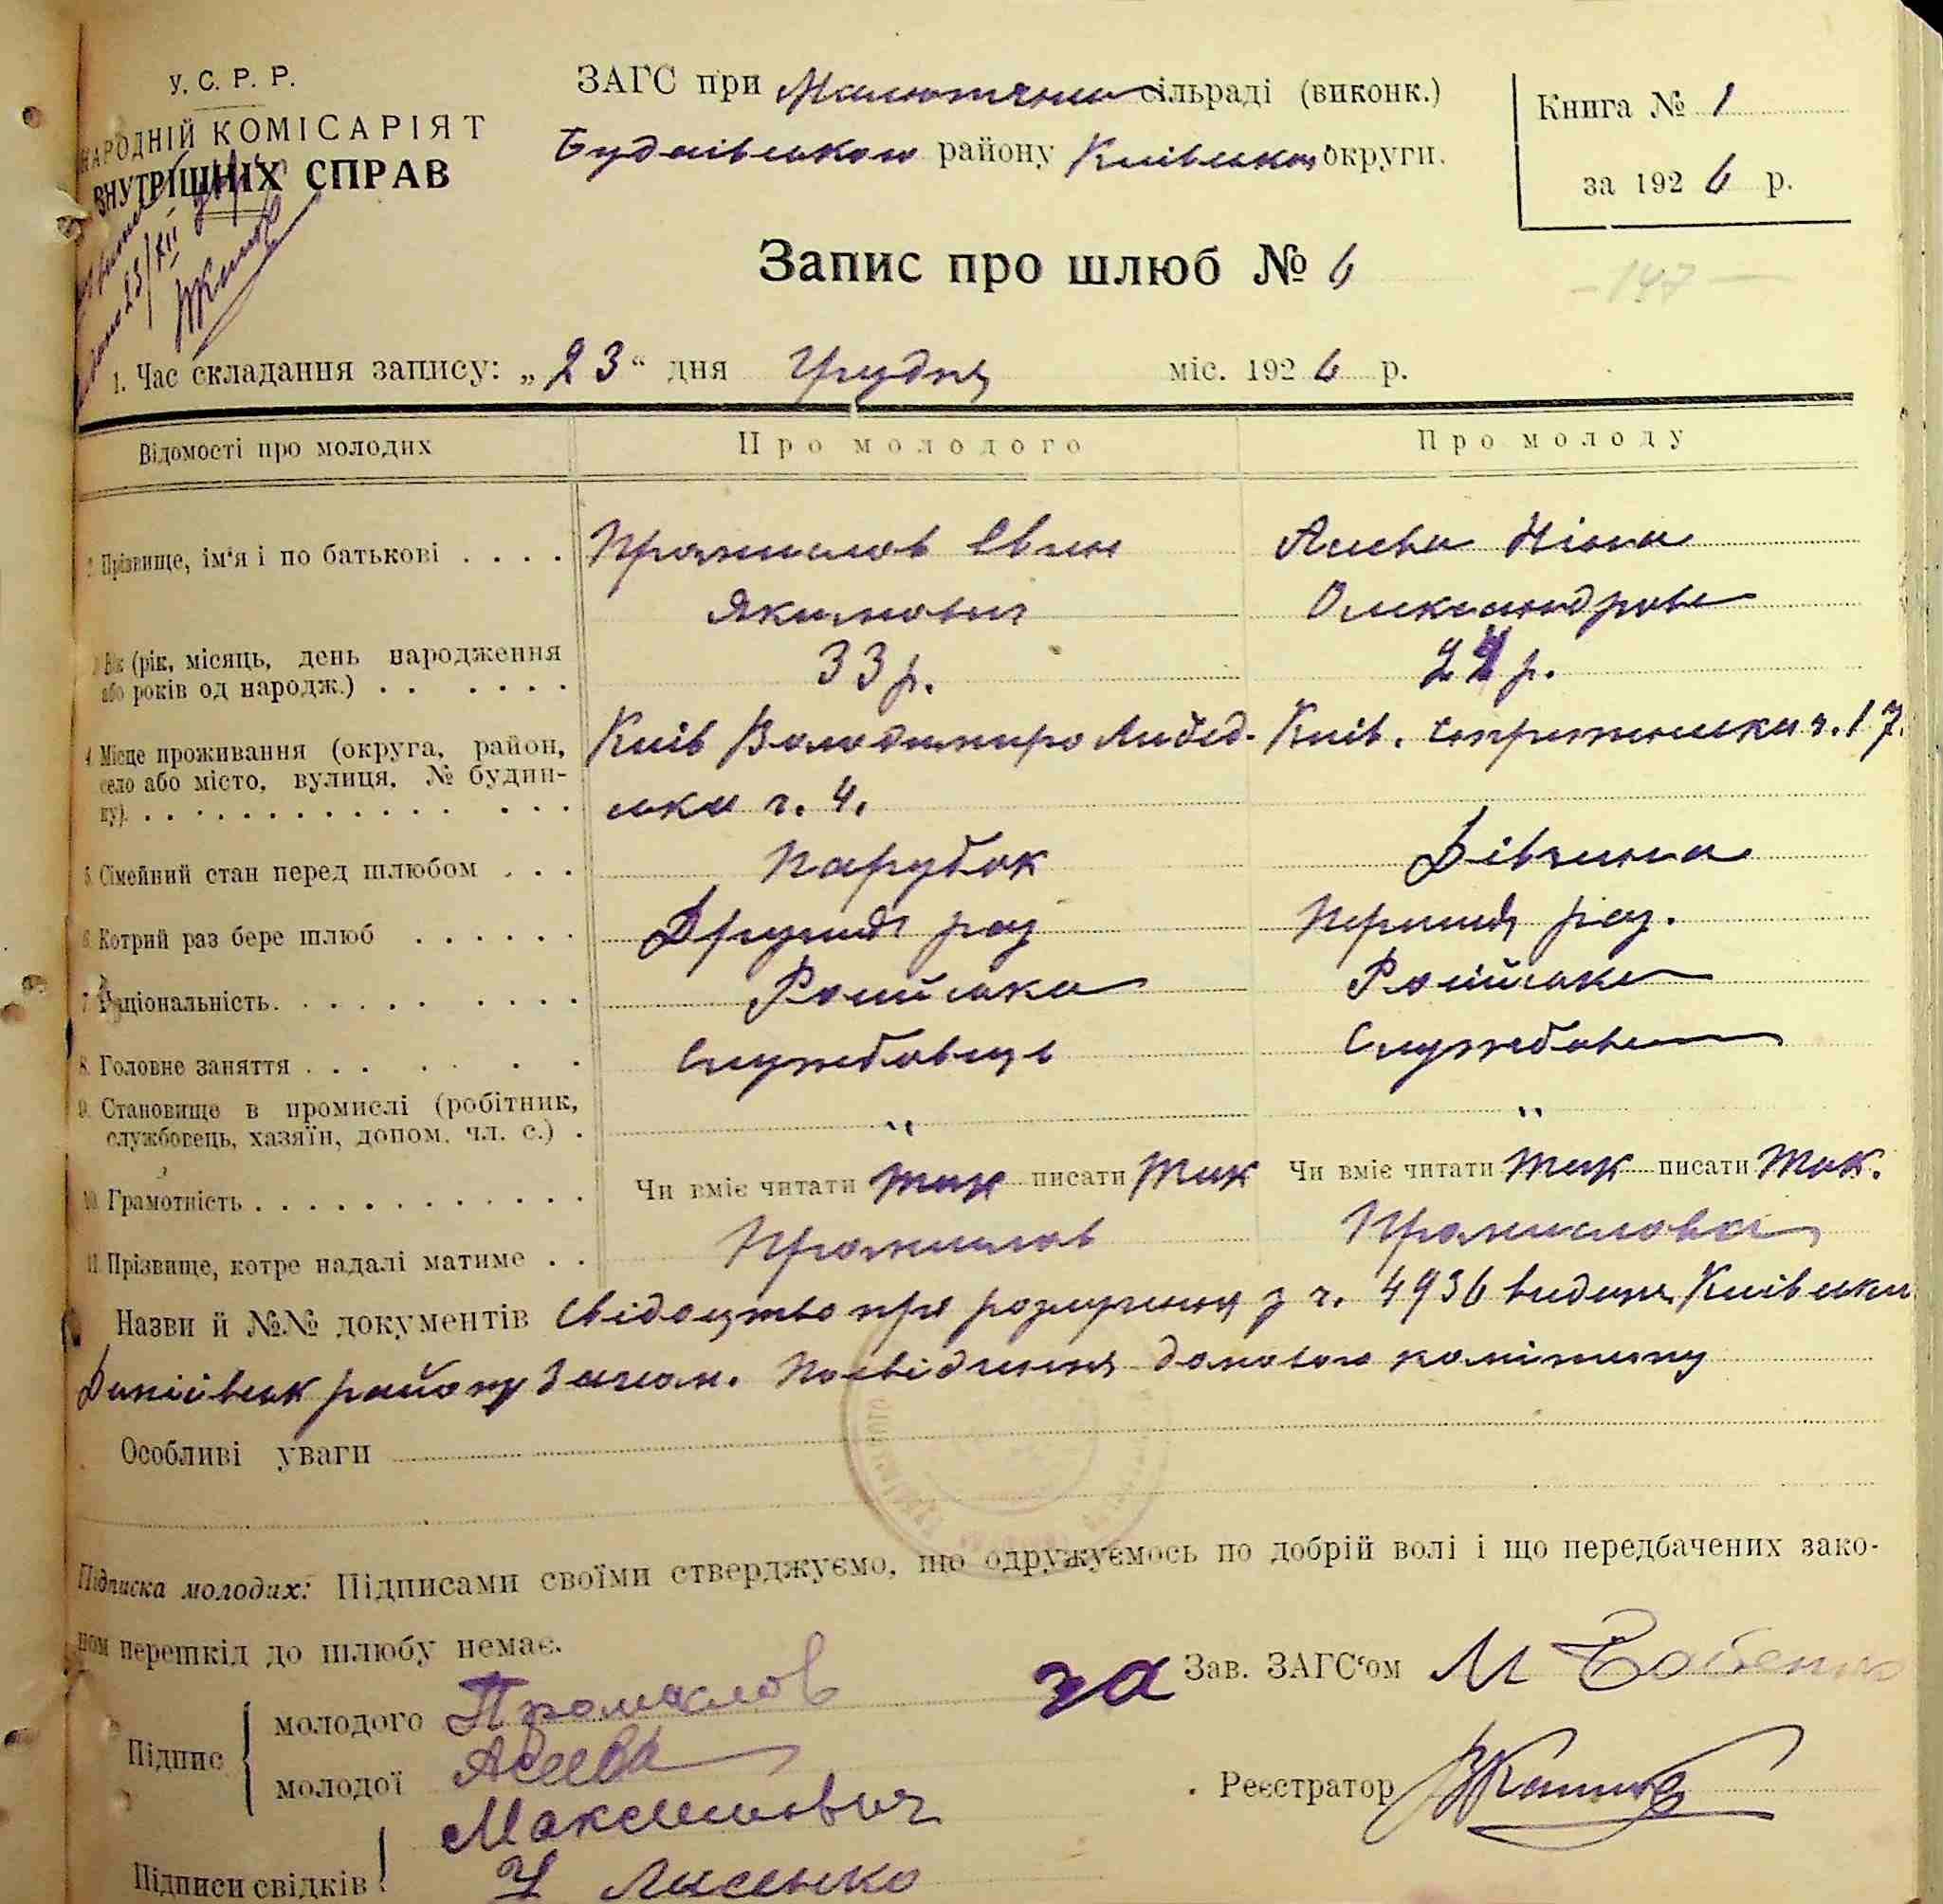 У. С. Р. Р.
НАРОДНІЙ КОМІСАРІЯТ
ВНУТРІШНІХ СПРАВ
ЗАГС при сільраді (виконк.)
Будаівського району Київської округи.
Книга № 1
за 1926 р.
Запис про шлюб № 6
- 147 -
1. Час складання запису: „23“ дня Грудня міс. 1926 р.
Відомості про молодих Про молодого Про молоду
2. Прізвище, ім'я і по батькові . . . . Промислов Асеева Ніна
Якимович Олександровн
3. Вік (рік, місяць, день народження
або років од народж.) . . . . . . 33 р. 24 р.
4. Місце проживання (округа, район, Київ Володимиро Либед- Київ. ч. 17.
село або місто, вулиця, № будин-
ку). . . . . . . . . . . . . . . ська ч. 4.
5. Сімейний стан перед шлюбом . . . Парубок Дівчина
6. Котрий раз бере шлюб . . . . . . Другий раз Перший раз.
7. Національність. . . . . . . . . . Російська Російська
8. Головне заняття . . . . . . . Службовець Службов
9. Становище в промислі (робітник,
службовець, хазяїн, допом. чл. с.) . " "
10. Грамотність . . . . . . . . . . . . Чи вміє читати так писати так Чи вміє читати так писати так.
11. Прізвище, котре надалі матиме . . Промислов Промислова
Назви й №№ документів Свідоцтво про розлучення з ч. 4936 видане Київськи
району Загсом. Посвідчення домового комітету
Особливі уваги
Підписка молодих: Підписами своїми стверджуємо, що одружуємось по добрій волі і що передбачених зако-
ном перешкід до шлюбу немає.
за Зав. ЗАГС'ом М
Підпис { молодого Промыслов
молодої Асеева
Реєстратор
Підписи свідків { Максимович
Лисенко